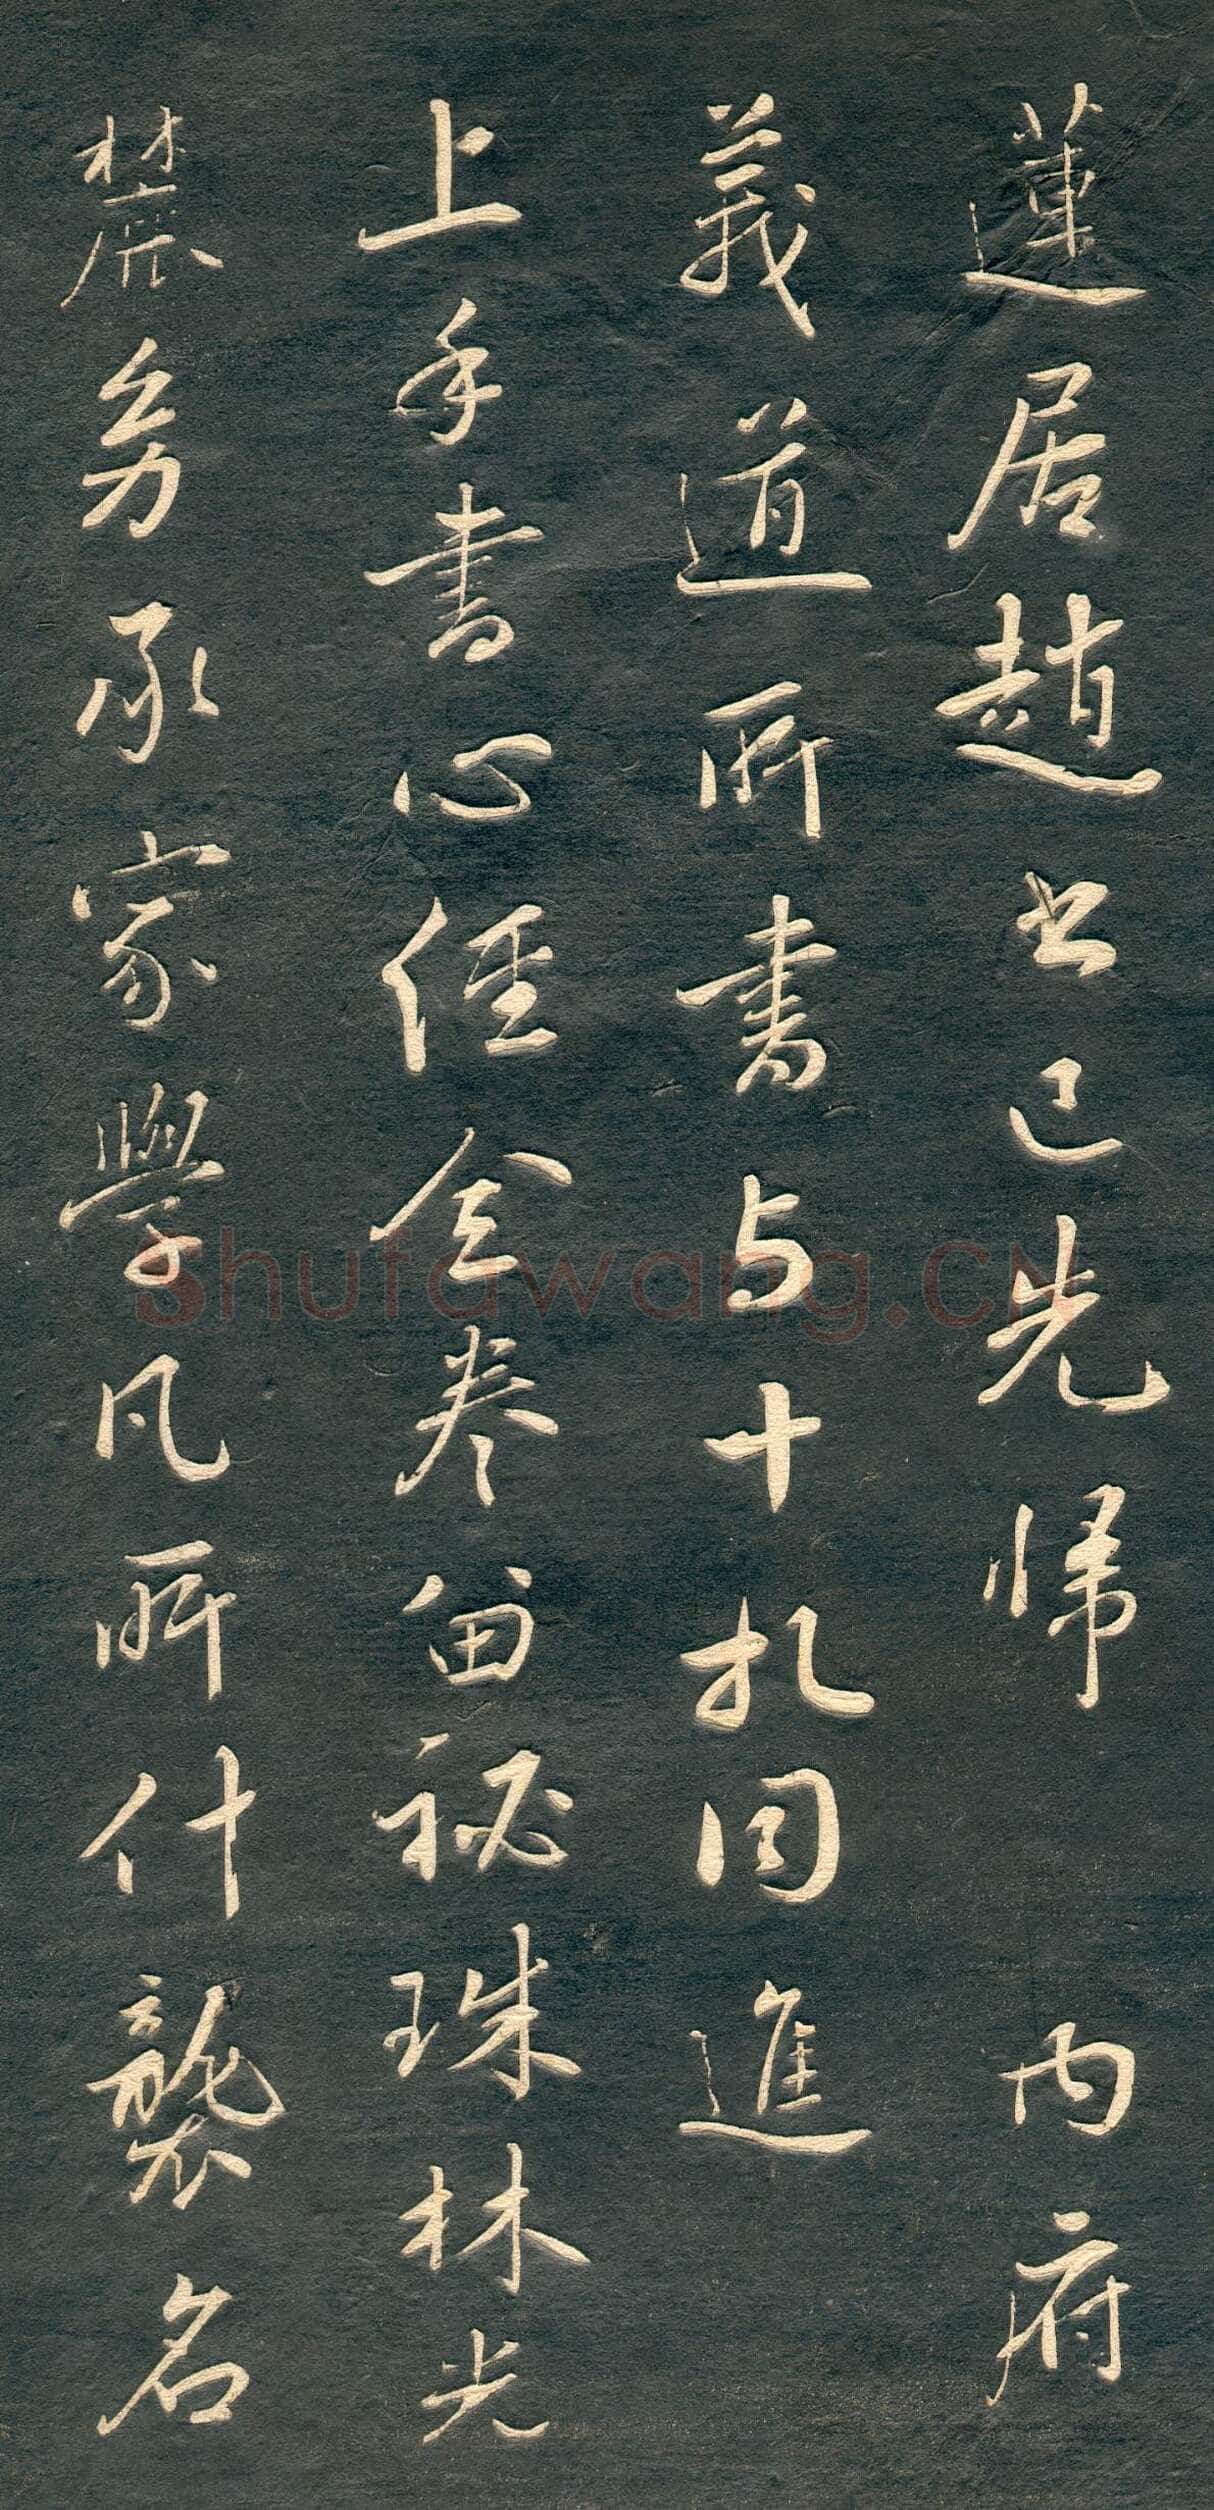 蓮居趙書已先歸 內府
義道所書与十札同進
上手書心經全卷留祕珠林光
棼幼承家學凡所什襲名
Shufawang.CN